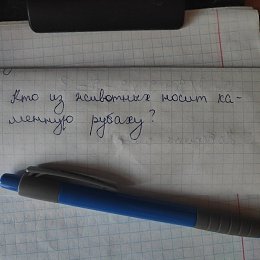 Кто из животных носит ка-
менную рубаху?